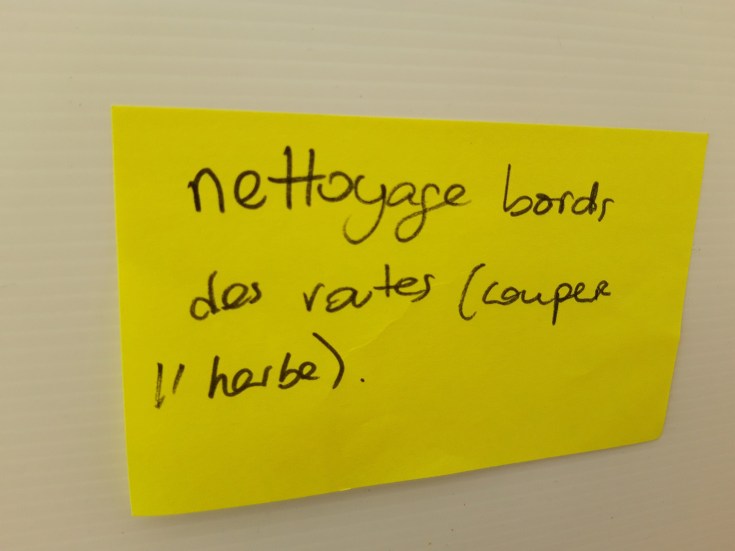 nettoyage bords
des routes (couper
l'herbe).